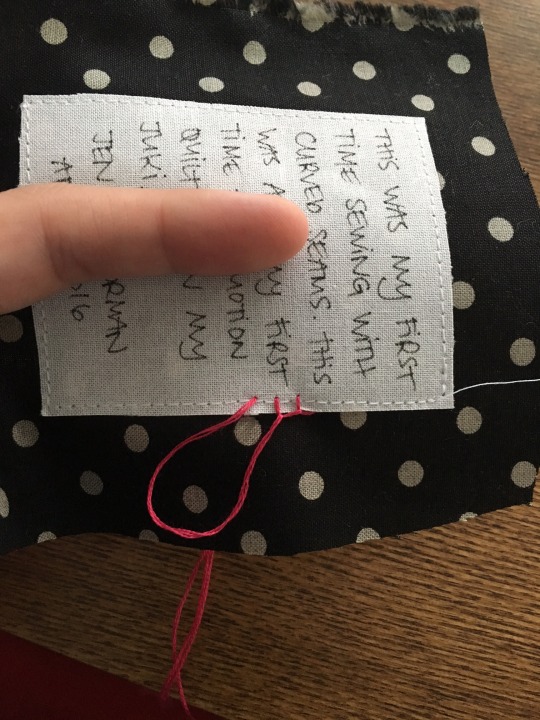 THIS WAS MY FIRST
TIME SEWING WITH
CURVED SEAMS. THIS
WAS MY FIRST
TIME MOTION
MY
JUKI.
JEN